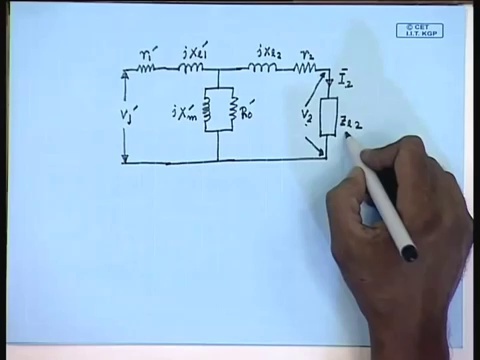 © CET
I.I.T. KGP
r₁′ jxℓ₁′ jxℓ₂ r₂
Ī₂
V₁′ jX′m R₀′ V₂ Zℓ₂